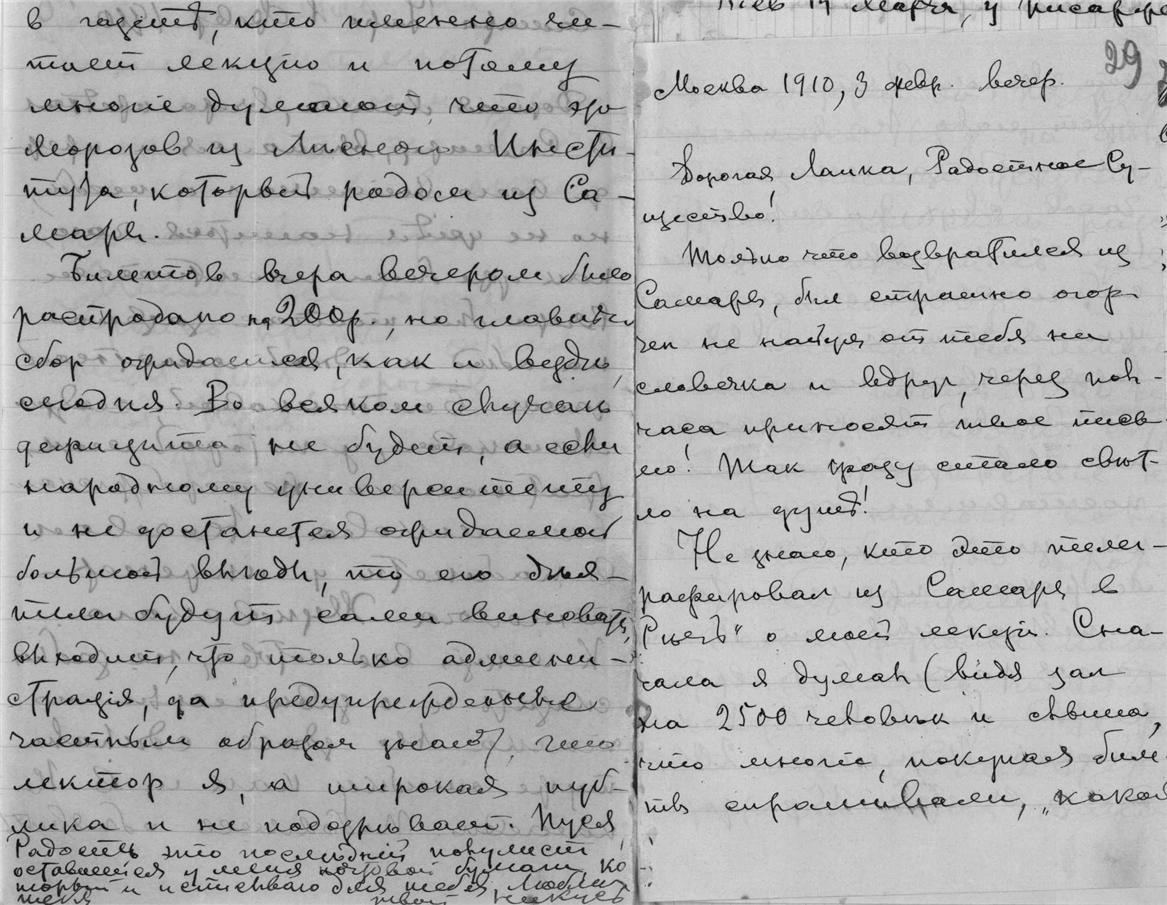 в газетѣ, кто именно чи-
таетъ лекцію и потому
многіе думаютъ, что это
Морозов из Лѣсного Инсти-
тута, который родом из Са-
мары.
Билетов вчера вечером было
распродано на 200 р., но главный
сбор ожидается, как и вездѣ,
сегодня. Во всяком случаѣ
дефицита не будет, а если
народному университету
и не достанется ожидаемой
большой выгоды, то его дѣя-
тели будут сами виноваты,
выходит, что только админи-
страція, да предупрежденные
частным образом знают, что
лектор я, а широкая пуб-
лика и не подозрѣвает. Пуся,
Радость это послѣдній полулист
оставшійся у меня почтовой бумаги, ко
торый и исписываю для тебя. Люблю
тебя твой
29
Москва 1910, 3 февр. вечер.
Дорогая Лапка, Радостное Су-
щество!
Только что возвратился из
Самары, был страшно огор-
чен не найдя от тебя ни
словечка и вдруг, через пол-
часа приносят твое пись-
мо! Так сразу стало свѣт-
ло на душѣ!
Не знаю, кто это теле-
графировал из Самары в
„Рѣчь“ о моей лекціи. Сна-
чала я думал (видя зал
на 2500 человѣк и слыша,
что многіе, покупая биле-
ты спрашивали, „какой